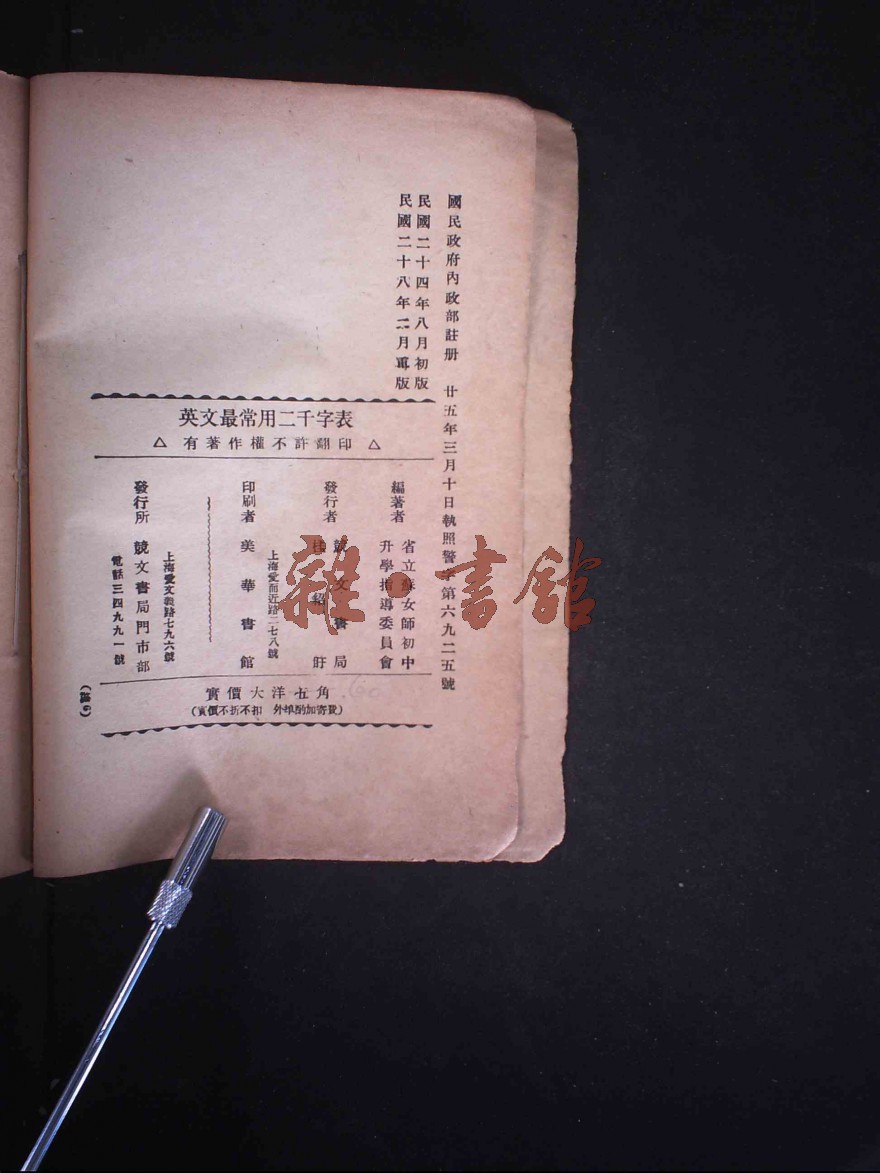 國民政府內政部註册　廿五年三月十日執照警字第六九二五號
民國二十四年八月初版
民國二十八年二月再版
英文最常用二千字表
△ 有著作權不許翻印 △
編著者
省立蘇女師初中
升學指導委員會
發行者
競文書局
桂紹盱
印刷者
上海愛而近路二七八號
美華書館
發行所
上海愛文義路七九六號
競文書局門市部
電話三四九九一號
實價大洋五角
60
(實價不折不扣 外埠酌加寄費)
雜·書館